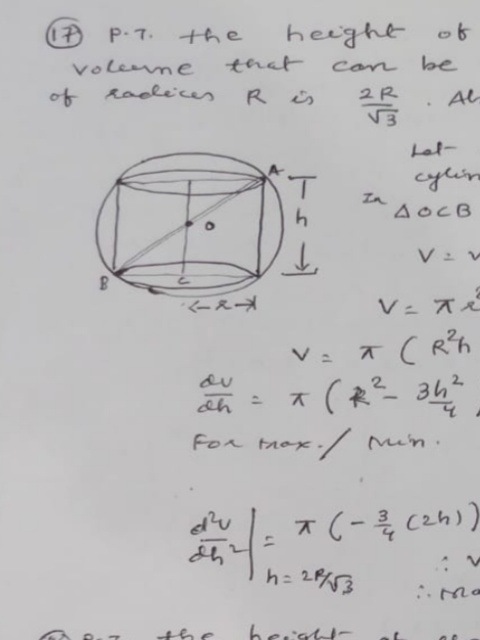 (17) P.T. the height of
volume that can be
of radices R is 2R/√3 . Al
Let
cylin
In
△OCB
A
h
O
B
C
r
V =
V = π r²
V = π ( R²h
dv/dh = π ( R² - 3h²/4
For max. / Min.
d²v/dh² | h = 2R/√3 = π (-3/4 (2h))
∴ V
∴ Ma
P.T. the height of